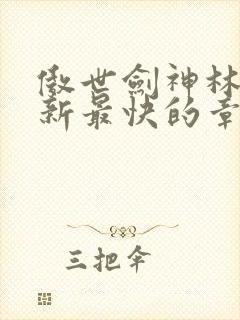 傲世劍神林
新最快的章
三把伞